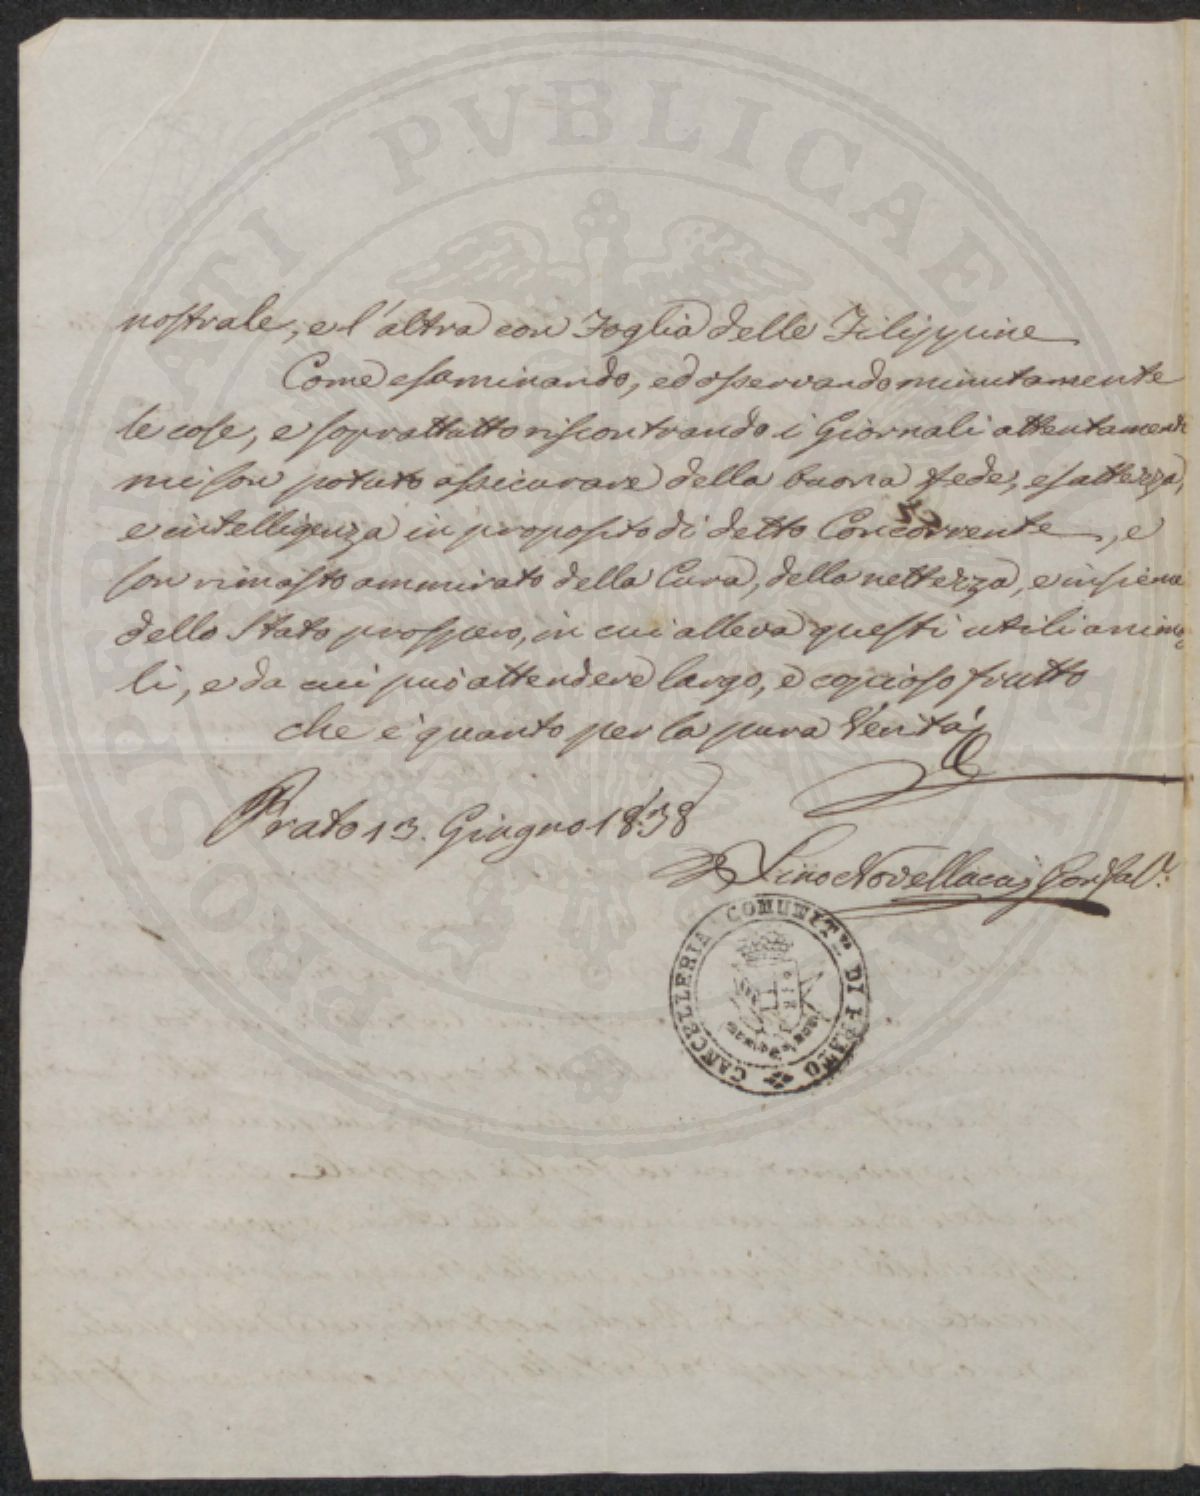 nostrale, e l'altra con Foglia delle Filippine
Come esaminando, ed osservando minutamente
le cose, e soprattutto riscontrando i Giornali attentamente
mi son potuto assicurare della buona fede, esattezza,
e intelligenza in proposito di detto Concorrente, e
son rimasto ammirato della Cura, della nettezza, e insieme
dello Stato prospero, in cui alleva questi utili anima
li, e da cui può attendere largo, e copioso frutto
che è quanto per la pura Verità
Prato 13. Giugno 1838
Novellucci Gonfal.
CANCELLERIA COMUNIT. DI PRATO
PROSPERITATI PVBLICAE